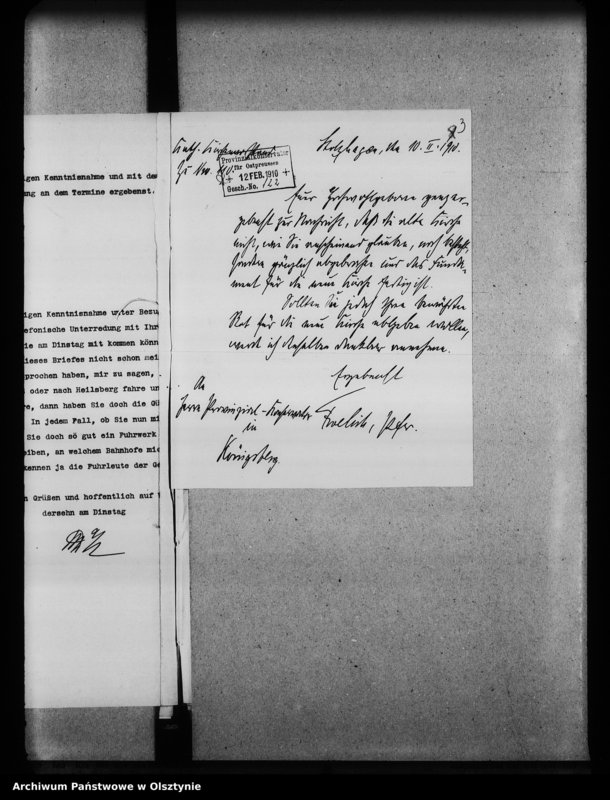 igen Kenntnisnahme und mit dem
ng an dem Termine ergebenst.
igen Kenntnisnahme unter Bezu
efonische Unterredung mit Ihr
ie am Dinstag mit kommen könn
ieses Briefes nicht schon mei
prochen haben, mir zu sagen,
oder nach Heilsberg fahre un
re, dann haben Sie doch die Gü
In jedem Fall, ob Sie nun mi
Sie doch so gut ein Fuhrwerk
eiben, an welchem Bahnhofe mic
kennen ja die Fuhrleute der Ge
n Grüßen und hoffentlich auf
dersehn am Dinstag
3
Kath.
Zu No.
Provinzialkonservator
für Ostpreussen
+ 12 FEB. 1910 +
Gesch.-No. 122
Stolzhagen, den 10. II. 1910.
Euer Hochwohlgeboren ganz er-
gebenst zur Nachricht, daß die alte Kirche
nicht, wie Sie anscheinend glauben, noch besteht,
sondern gänzlich abgebrochen und das Funda-
ment für die neue Kirche fertig ist.
Sollten Sie jedoch Ihren
Rat für die neue Kirche abgeben wollen,
werde ich denselben dankbar annehmen.
Ergebenst
Pfr.
An
Herrn Provinzial-Konservator
in
Königsberg.
Archiwum Państwowe w Olsztynie